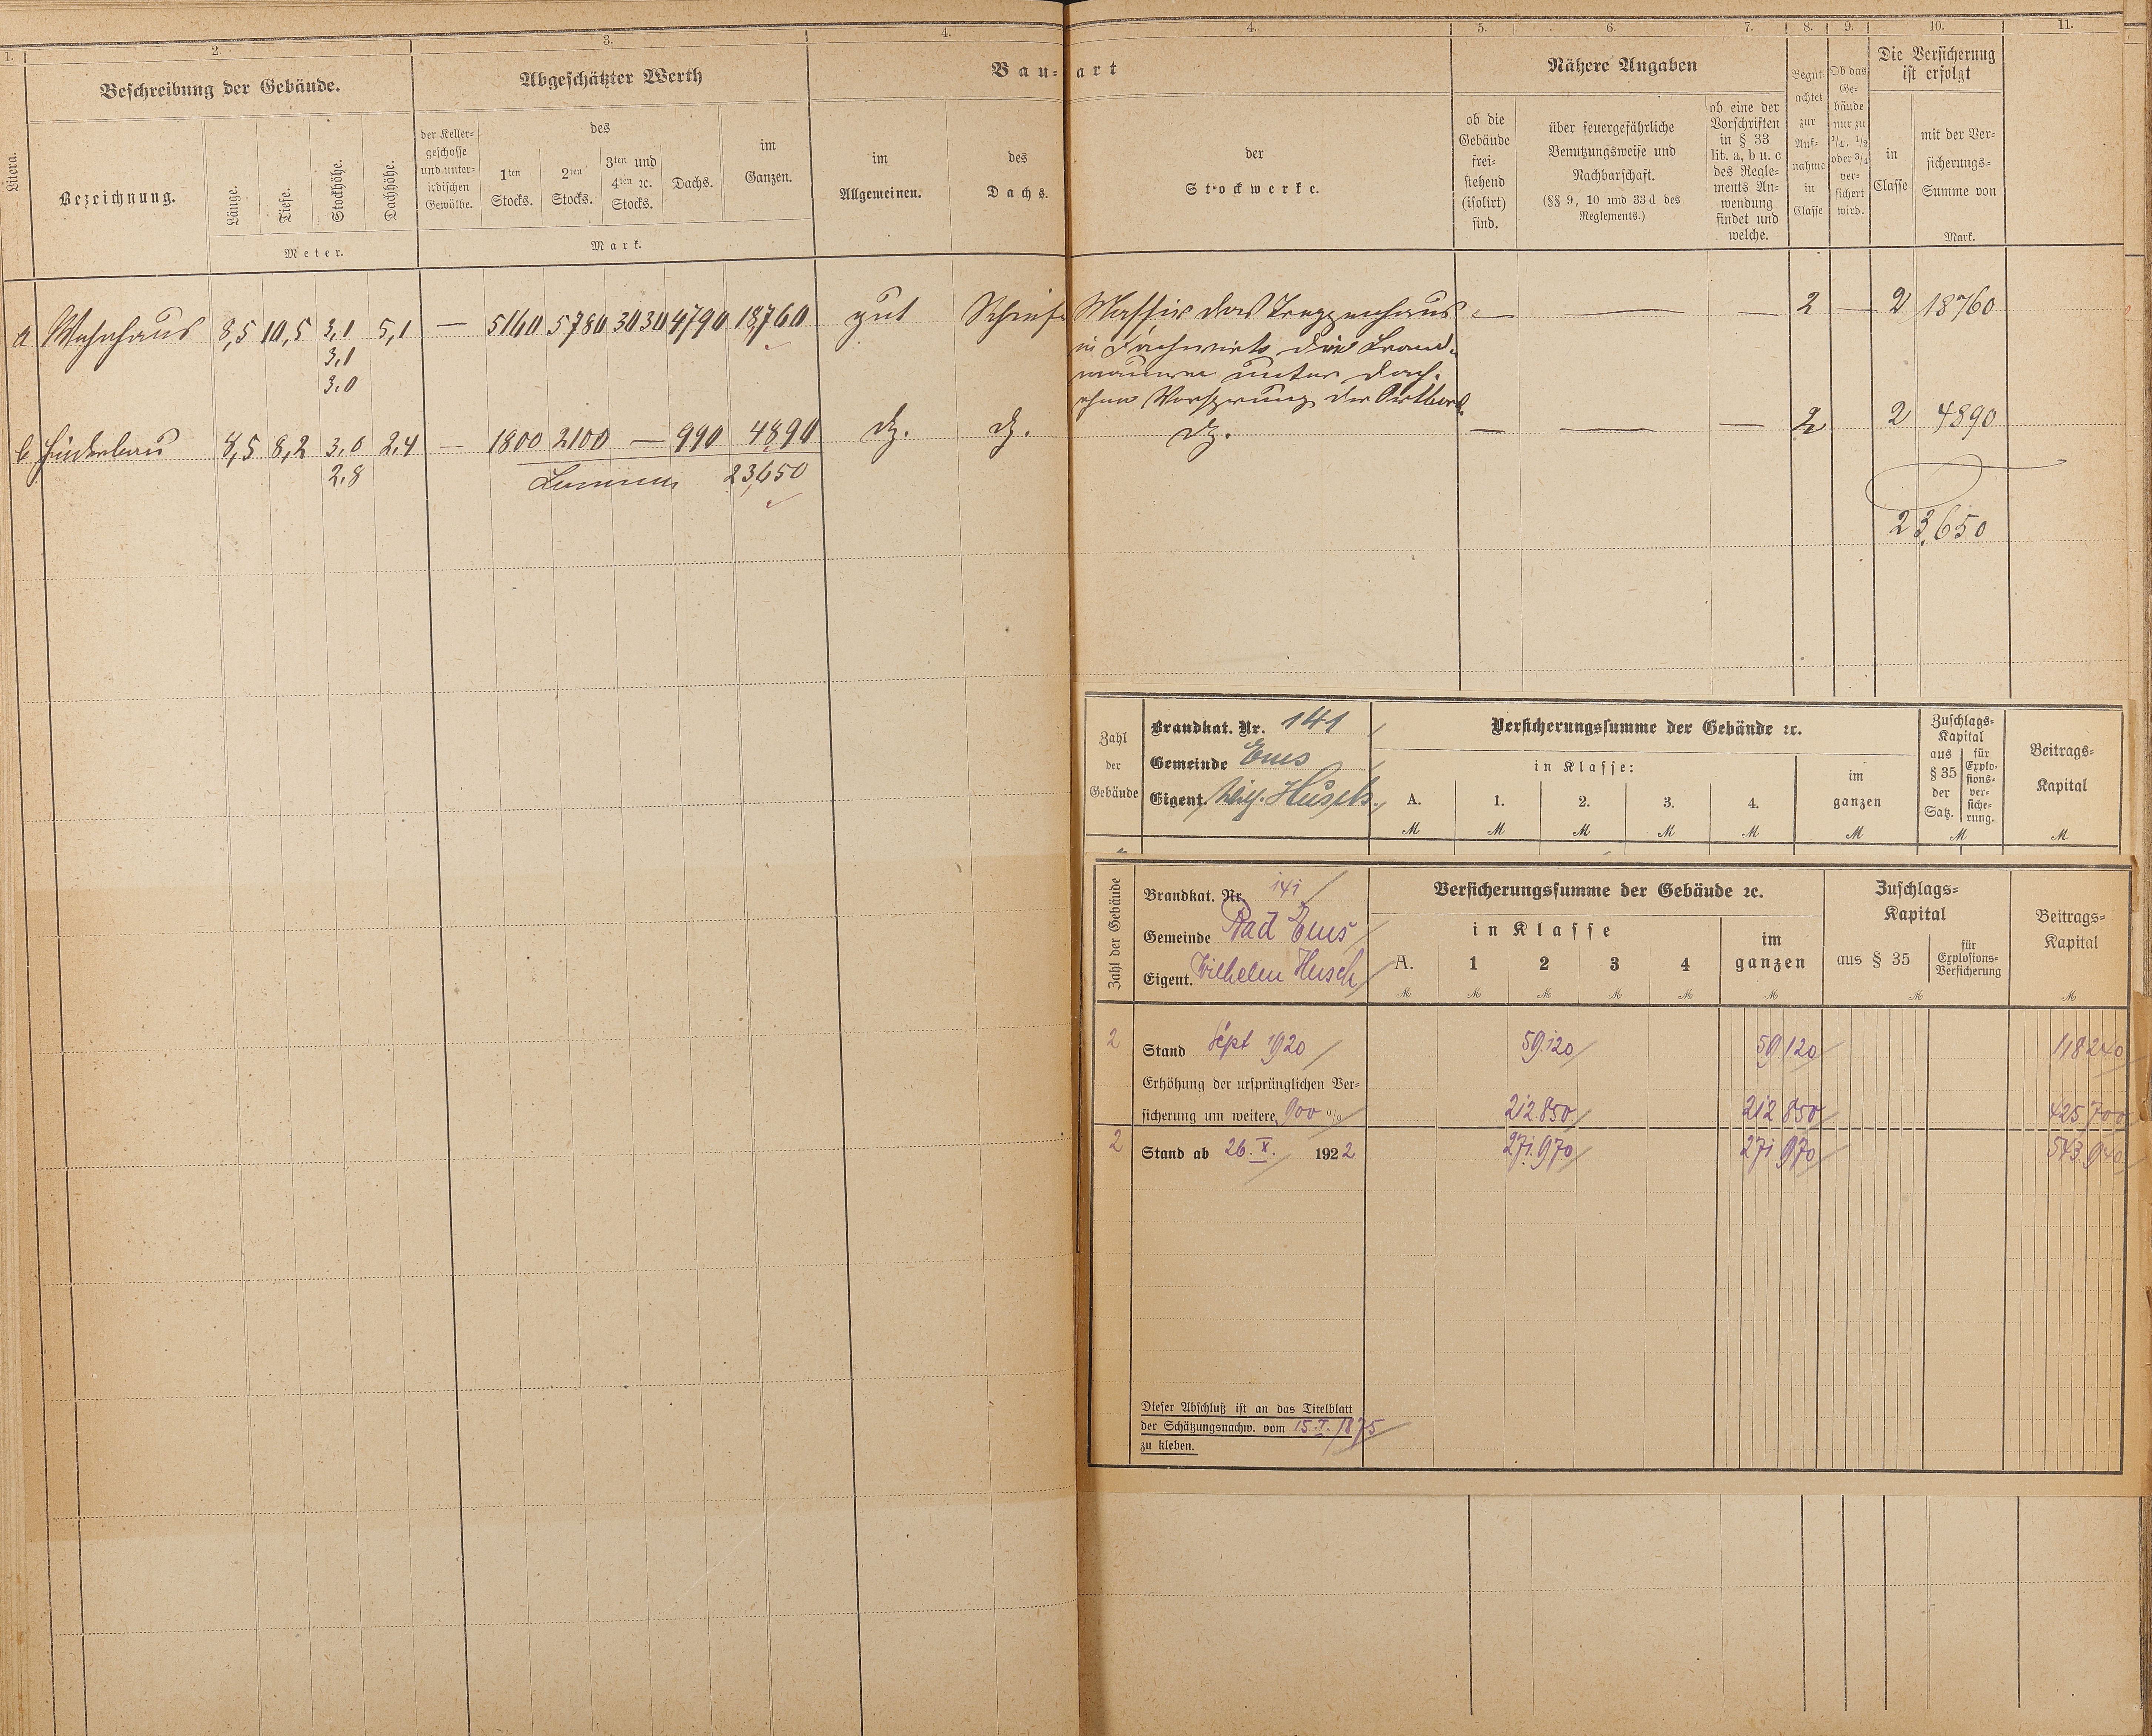 1. 2. 3. 4. 4. 5. 6. 7. 8. 9. 10. 11.
Litera.
Beschreibung der Gebäude.
Bezeichnung.
Länge.
Tiefe.
Stockhöhe.
Dachhöhe.
Meter.
Abgeschätzter Werth
der Keller-
geschosse
und unter-
irdischen
Gewölbe.
des
1ten
Stocks.
2ten
Stocks.
3ten und
4ten ꝛc.
Stocks.
Dachs.
im
Ganzen.
Mark.
Bau-art
im
Allgemeinen.
des
Dachs.
der
Stockwerke.
Nähere Angaben
ob die
Gebäude
frei-
stehend
(isolirt)
sind.
über feuergefährliche
Benutzungsweise und
Nachbarschaft.
(§§ 9, 10 und 33 d des
Reglements.)
ob eine der
Vorschriften
in § 33
lit. a, b u. c
des Regle-
ments An-
wendung
findet und
welche.
Begut-
achtet
zur
Auf-
nahme
in
Classe
Ob das
Ge-
bäude
nur zu
1/4, 1/2
oder 3/4
ver-
sichert
wird.
Die Versicherung
ist erfolgt
in
Classe
mit der Ver-
sicherungs-
Summe von
Mark.
a Wohnhaus 8,5 10,5 3,1 5,1 — 5160 5780 3030 4790 18,760 gut Schief Massiv das Treppenhaus — — — 2 — 2 18760
3,1 in Fachwerk die Brand-
3.0 mauern unter Dach.
ohne Vorsprung der
b Hinterbau 8,5 8,2 3,0 2,4 — 1800 2100 — 990 4890 dz. dz. dz. — — — 2 2 4890
2,8 Summa 23,650
23,650
Zahl
der
Gebäude
Brandkat. Nr. 141
Gemeinde Ems
Eigent. Husch
Versicherungssumme der Gebäude ꝛc.
in Klasse:
A. 1. 2. 3. 4.
im
ganzen
M M M M M M
Zuschlags-
Kapital
aus
§ 35
der
Satz.
für
Explo-
sions-
ver-
siche-
rung.
M
Beitrags-
Kapital
M
Zahl der Gebäude
Brandkat. Nr. 141
Gemeinde Bad Ems
Eigent. Wilhelm Husch
Versicherungssumme der Gebäude ꝛc.
in Klasse
A. 1 2 3 4
im
ganzen
M M M M M M
Zuschlags-
Kapital
aus § 35
für
Explosions-
Versicherung
M
Beitrags-
Kapital
M
2 Stand Sept 1920 59.120 59 120 118 240
Erhöhung der ursprünglichen Ver-
sicherung um weitere 900 % 212.850 212 850 425 700
2 Stand ab 26. X. 1922 271.970 271 970 543.940
Dieser Abschluß ist an das Titelblatt
der Schätzungsnachw. vom 15. I. 1875
zu kleben.